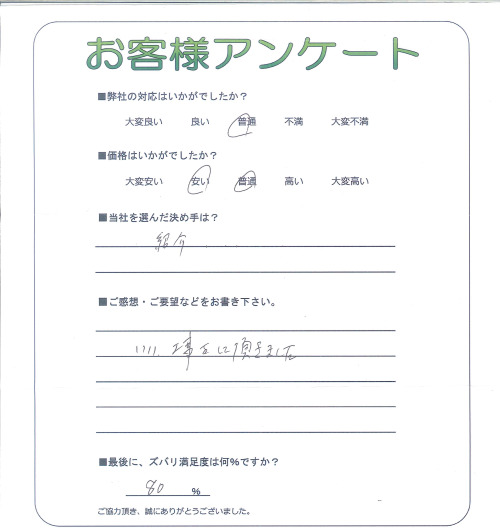 お客様アンケート
■弊社の対応はいかがでしたか？
大変良い 良い 普通 不満 大変不満
■価格はいかがでしたか？
大変安い 安い 普通 高い 大変高い
■当社を選んだ決め手は？
紹介
■ご感想・ご要望などをお書き下さい。
いい工事をして頂きました
■最後に、ズバリ満足度は何%ですか？
80 %
ご協力頂き、誠にありがとうございました。